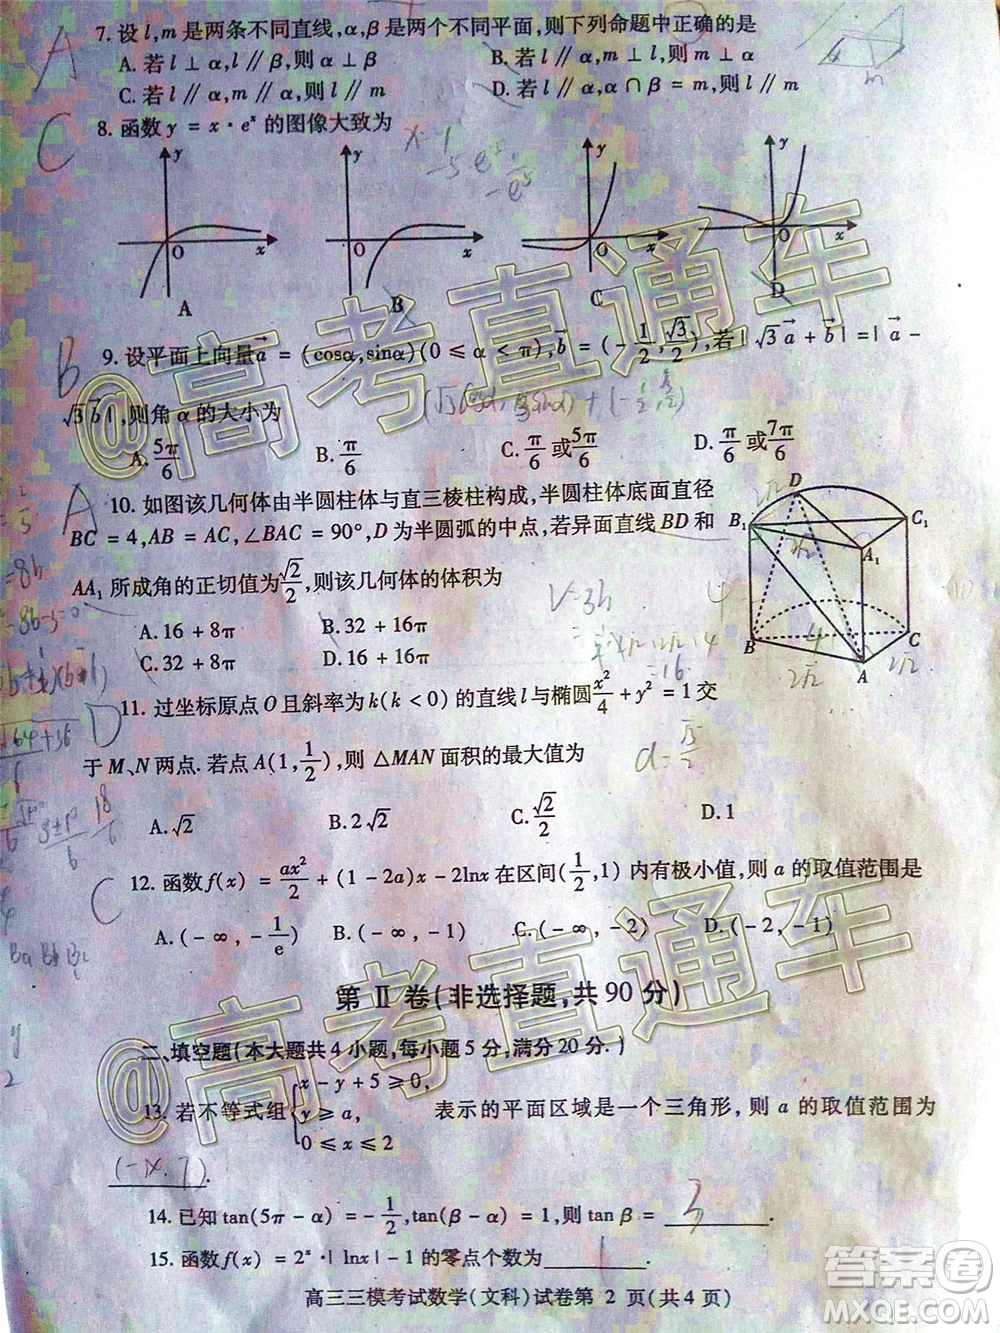 A
7. 设 l,m 是两条不同直线,α,β 是两个不同平面,则下列命题中正确的是
A. 若 l ⊥ α,l // β,则 α ⊥ β
B. 若 l // α,m ⊥ l,则 m ⊥ α
C. 若 l // α,m // α,则 l // m
D. 若 l // α,α ∩ β = m,则 l // m
m
C
8. 函数 y = x · e^x 的图像大致为
y
O
x
A
y
O
x
B
y
O
x
C
y
O
x
D
B
9. 设平面上向量 a⃗ = (cosα,sinα)(0 ≤ α < π),b⃗ = (-1/2,√3/2),若 | √3 a⃗ + b⃗ | = | a⃗ -
√3 b⃗ |,则角 α 的大小为
A. 5π/6
B. π/6
C. π/6 或 5π/6
D. π/6 或 7π/6
A
10. 如图该几何体由半圆柱体与直三棱柱构成,半圆柱体底面直径
BC = 4,AB = AC,∠BAC = 90°,D 为半圆弧的中点,若异面直线 BD 和
AA₁ 所成角的正切值为 √2/2,则该几何体的体积为
A. 16 + 8π
B. 32 + 16π
C. 32 + 8π
D. 16 + 16π
D
B₁
C₁
A₁
B
C
A
4
2√2
2√2
V=Sh
=16
D
11. 过坐标原点 O 且斜率为 k(k < 0) 的直线 l 与椭圆 x²/4 + y² = 1 交
于 M、N 两点. 若点 A(1,1/2),则 △MAN 面积的最大值为
A. √2
B. 2√2
C. √2/2
D. 1
C
12. 函数 f(x) = ax²/2 + (1 - 2a)x - 2lnx 在区间(1/2,1) 内有极小值,则 a 的取值范围是
A. (- ∞ , - 1/e)
B. (- ∞ , - 1)
C. (- ∞ , - 2)
D. (- 2, - 1)
第 Ⅱ 卷(非选择题,共 90 分)
二、填空题(本大题共 4 小题,每小题 5 分,满分 20 分.)
13. 若不等式组 { x - y + 5 ≥ 0, y ≥ a, 0 ≤ x ≤ 2 表示的平面区域是一个三角形, 则 a 的取值范围为
.
14. 已知 tan(5π - α) = - 1/2,tan(β - α) = 1,则 tan β = 3 .
15. 函数 f(x) = 2^x ·| lnx | - 1 的零点个数为
高三三模考试数学(文科)试卷第 2 页(共 4 页)
@高考直通车
@高考直通车
答案圈
MXQE.COM